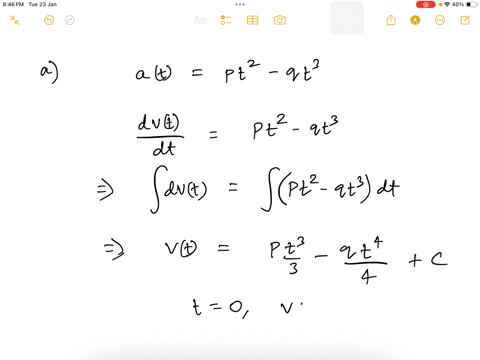 8:46 PM Tue 23 Jan
40%
Aa
a) a(t) = pt² - qt³
dv(t)/dt = pt² - qt³
⇒ ∫dv(t) = ∫(pt² - qt³) dt
⇒ v(t) = p t³/3 - q t⁴/4 + c
t = 0, v.